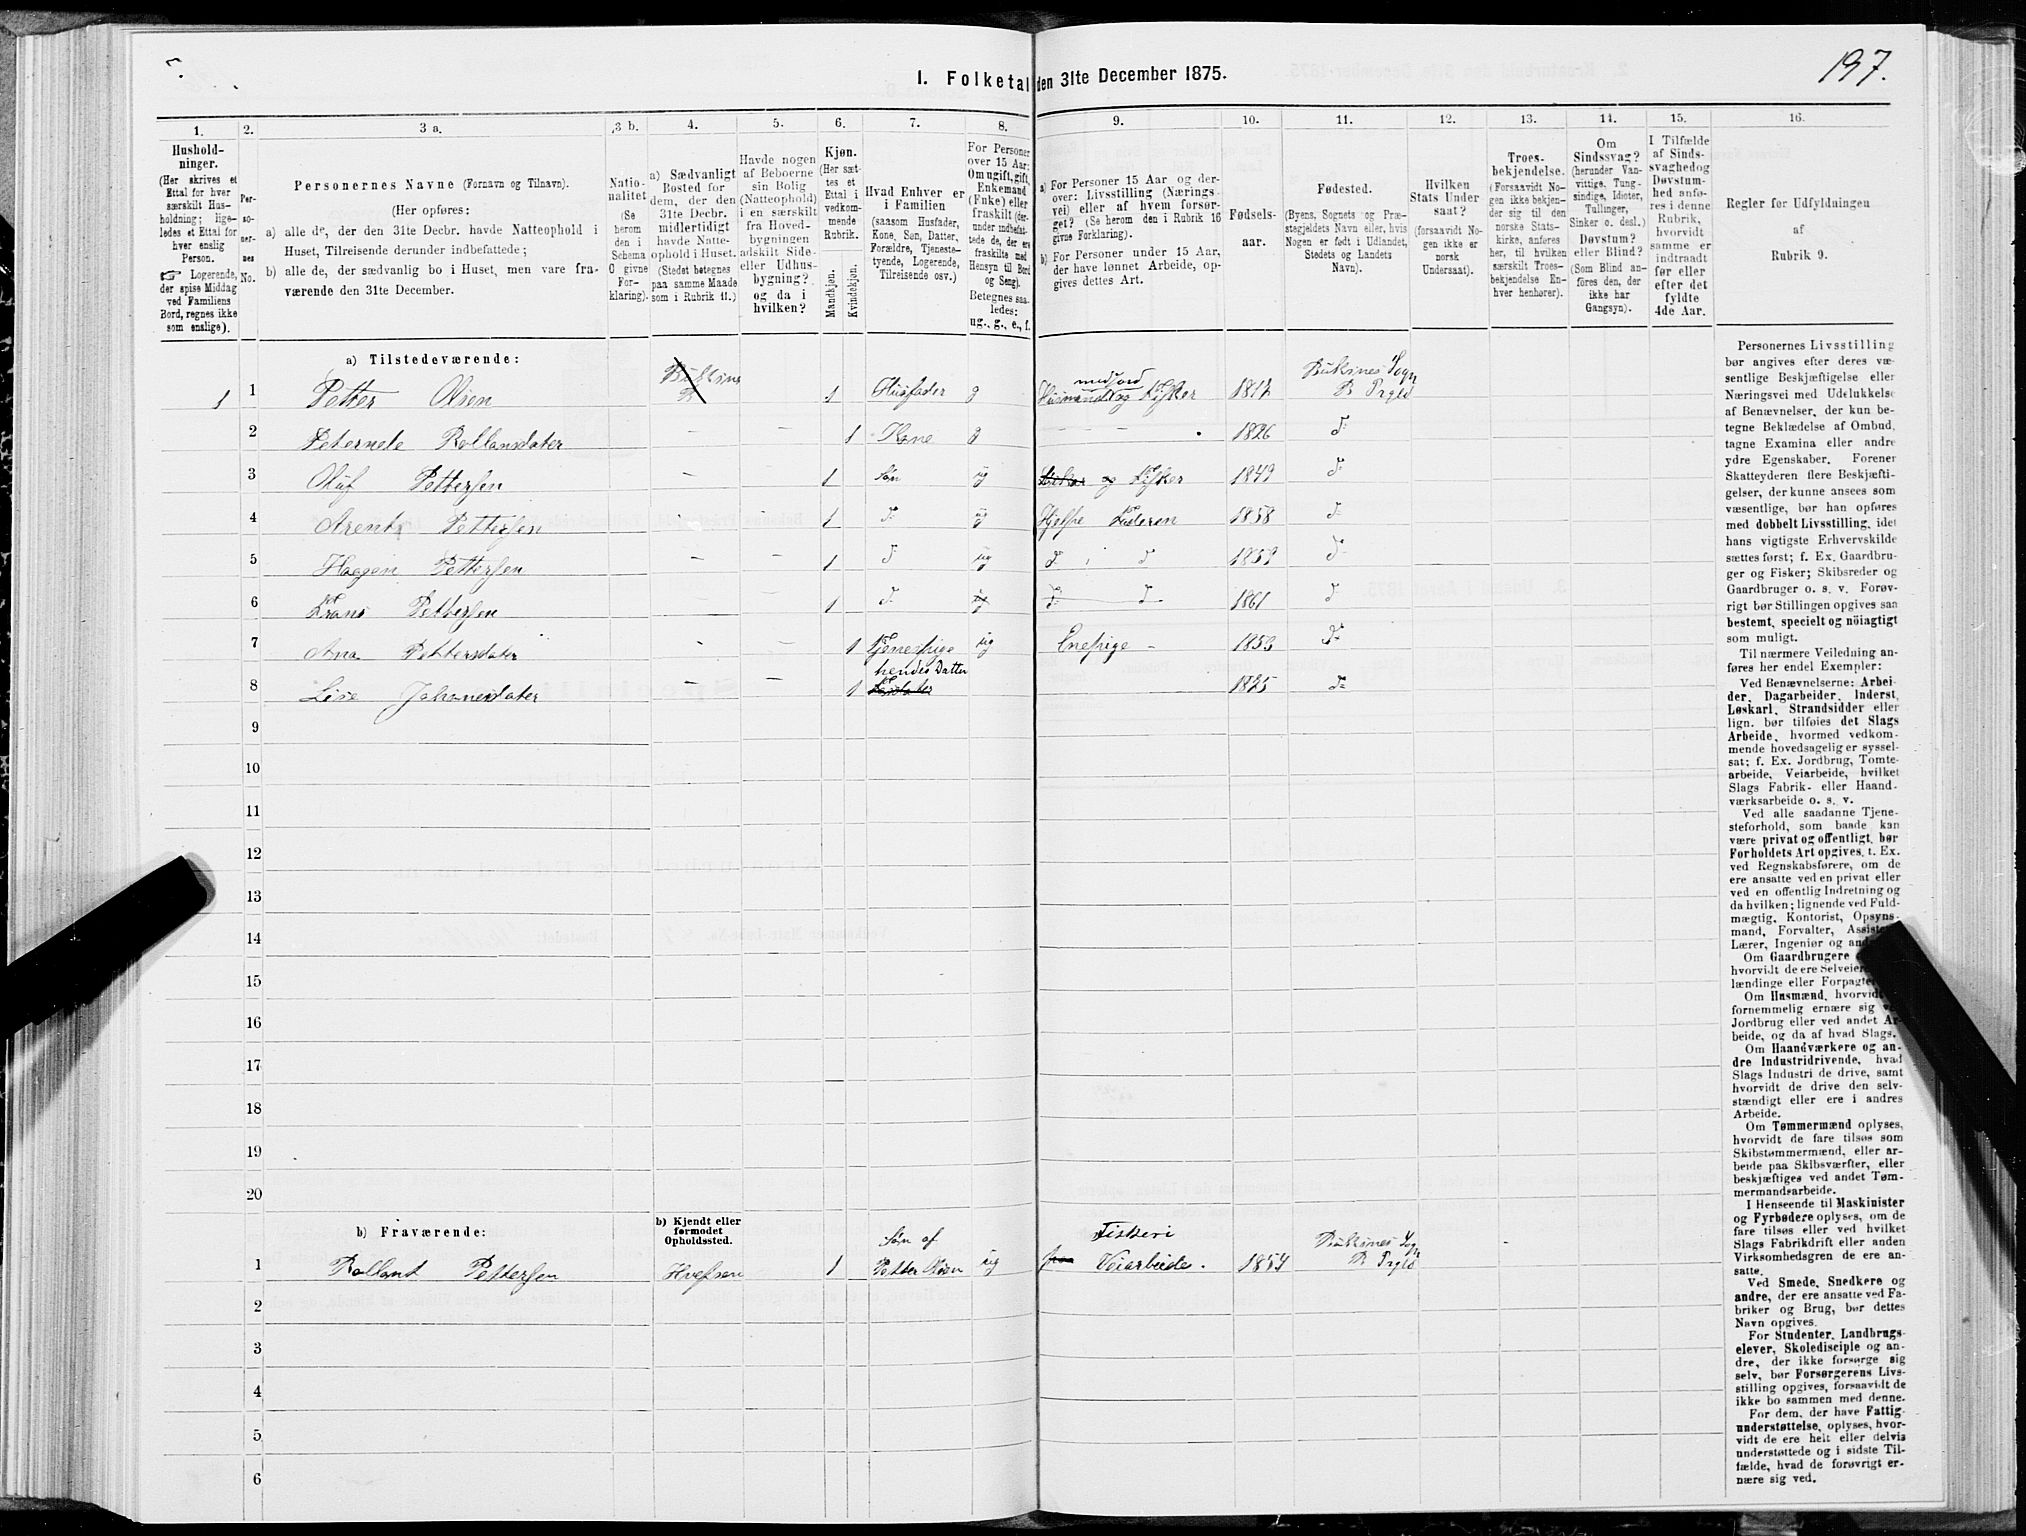 197.
1. Folketal den 31te December 1875.
1.
2.
3 a.
3 b.
4.
5.
6.
7.
8.
9.
10.
11.
12.
13.
14.
15.
16.
Hushold-
ninger.
(Her skrives et
Ettal for hver
særskilt Hus-
holdning; lige-
ledes et Ettal for
hver enslig
Person.
☞ Logerende,
der spise Middag
ved Familiens
Bord, regnes ikke
som enslige).
Per-
so-
ner-
nes
No.
Personernes Navne (Fornavn og Tilnavn).
(Her opføres:
a) alle de, der den 31te Decbr. havde Natteophold i
Huset, Tilreisende derunder indbefattede;
b) alle de, der sædvanlig bo i Huset, men vare fra-
værende den 31te December.
Natio-
nalitet
(Se
herom
den i
Schema
O givne
For-
klaring).
a) Sædvanligt
Bosted for
dem, der den
31te Decbr.
midlertidigt
havde Natte-
ophold i Huset.
(Stedet betegnes
paa samme Maade
som i Rubrik 11.)
Havde nogen
af Beboerne
sin Bolig
(Natteophold)
i en særskilt
fra Hoved-
bygningen
adskilt Side-
eller Udhus-
bygning?
og da i
hvilken?
Kjøn.
(Her sæt-
tes et
Ettal i
vedkom-
mende
Rubrik.
Mandkjøn.
Kvindekjøn.
Hvad Enhver er
i Familien
(saasom Husfader,
Kone, Søn, Datter,
Forældre, Tjeneste-
tyende, Logerende,
Tilreisende osv.)
For Personer
over 15 Aar:
Om ugift, gift,
Enkemand
(Enke) eller
fraskilt (der-
under indbefat-
tede de, der ere
fraskilte med
Hensyn til Bord
og Seng).
Betegnes saa-
ledes:
ug., g., e., f.
a) For Personer 15 Aar og der-
over: Livsstilling (Nærings-
vei) eller af hvem forsør-
get? (Se herom den i Rubrik 16
givne Forklaring).
b) For Personer under 15 Aar,
der have lønnet Arbeide, op-
gives dettes Art.
Fødsels-
aar.
Fødested.
(Byens, Sognets og Præ-
stegjeldets Navn eller, hvis
Nogen er født i Udlandet,
Stedets og Landets
Navn).
Hvilken
Stats Under
saat?
(forsaavidt No-
gen ikke er
norsk
Undersaat).
Troes-
bekjendelse.
(Forsaavidt No-
gen ikke bekjen-
der sig til den
norske Stats-
kirke, anføres
her, til hvilken
særskilt Troes-
bekjendelse En-
hver henhører).
Om
Sindssvag?
(herunder Van-
vittige, Tung-
sindige, Idioter,
Tullinger,
Sinker o. desl.)
Døvstum?
eller Blind?
(Som Blind an-
føres den, der
ikke har
Gangsyn).
I Tilfælde
af Sinds-
svaghed og
Døvstum-
hed anfø-
res i denne
Rubrik,
hvorvidt
samme er
indtraadt
før eller
efter det
fyldte
4de Aar.
Regler for Udfyldningen
af
Rubrik 9.
a) Tilstedeværende:
1 1 Petter Olsen 1 Husfader g Husmand med jord og Fisker 1812 Buksnes Sogn B Prgld
2 Peternele Rollansdater — — 1 Kone g — — — 1826 d
3 Oluf Pettersen — — 1 Søn ug og Fisker 1849 d
4 Arent Pettersen 1 d ug Hjelpe Faderen 1858 d
5 Haagen Pettersen — — 1 d ug d i d 1859 d
6 Frans Pettersen 1 d ug d d 1861 d
7 Ana Pettersdater — — 1 Tjenestpige ug 1853 d
8 Lise Johanesdater — — 1 hendes Datter 1825 d
9
10
11
12
13
14
15
16
17
18
19
20
b) Fraværende:
b) Kjendt eller
formodet
Opholdssted.
1 Rollant Pettersen 1 Søn af Petter Olsen ug Fiskeri Veiarbeide. 1854 Buksnes Sogn B Prgld
2
3
4
5
6
Personernes Livsstilling
bør angives efter deres væ-
sentlige Beskjæftigelse eller
Næringsvei med Udelukkelse
af Benævnelser, der kun be-
tegne Beklædelse af Ombud,
tagne Examina eller andre
ydre Egenskaber. Forener
Skatteyderen flere Beskjæfti-
gelser, der kunne ansees som
væsentlige, bør han opføres
med dobbelt Livsstilling, idet
hans vigtigste Erhvervskilde
sættes først; f. Ex. Gaardbru-
ger og Fisker; Skibsreder og
Gaardbruger o. s. v. Forøv-
rigt bør Stillingen opgives saa
bestemt, specielt og nöiagtigt
som muligt.
Til nærmere Veiledning an-
føres her endel Exempler:
Ved Benævnelserne: Arbei-
der, Dagarbeider, Inderst,
Løskarl, Strandsidder eller
lign. bør tilføies det Slags
Arbeide, hvormed vedkom-
mende hovedsagelig er syssel-
sat; f. Ex. Jordbrug, Tomte-
arbeide, Veiarbeide, hvilket
Slags Fabrik- eller Haand-
værksarbeide o. s. v.
Ved alle saadanne Tjene-
steforhold, som baade kan
være privat og offentligt, bør
Forholdets Art opgives, t. Ex.
ved Regnskabsførere, om de
ere ansatte ved en privat eller
ved en offentlig Indretning og
da hvilken; lignende ved Fuld-
mægtig, Kontorist, Opsyns-
mand, Forvalter,
Lærer, Ingeniør og
Om Gaardbrugere
hvorvidt de ere
lændinge eller
Om Husmænd,
fornemmelig ernære sig
Jordbrug eller ved andet Ar-
beide, og da af hvad Slags.
Om Haandværkere og an-
dre Industridrivende, hvad
Slags Industri de drive, samt
hvorvidt de drive den selv-
stændigt eller ere i andres
Arbeide.
Om Tømmermænd oplyses,
hvorvidt de fare tilsøs som
Skibstømmermænd, eller ar-
beide paa Skibsværfter, eller
beskjæftiges ved andet Tøm-
mermandsarbeide.
I Henseende til Maskinister
og Fyrbødere oplyses, om de
fare tilsøs eller ved hvilket
Slags Fabrikdrift eller anden
Virksomhedsgren de ere an-
satte.
Ved Smede, Snedkere og
andre, der ere ansatte ved Fa-
briker og Brug, bør dettes
Navn opgives.
For Studenter, Landbrugs-
elever, Skoledisciple og an-
dre, der ikke forsørge sig
selv, bør Forsørgerens Livs-
stilling opgives, forsaavidt de
ikke bo sammen med denne.
For dem, der have Fattig-
understøttelse, oplyses, hvor-
vidt de ere helt eller delvis
understøttede og i sidste Til-
fælde, hvad de forøvrigt er-
nære sig ved.